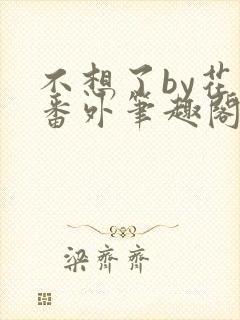 不想了by花
番外笔趣阁
梁齐齐